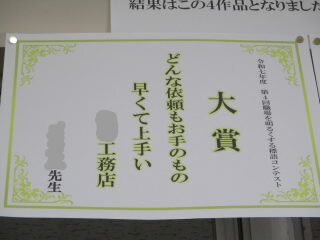 結果はこの4作品となりました
令和七年度 第4回職場を明るくする標語コンテスト
大賞
どんな依頼もお手のもの
早くて上手い
工務店
先生